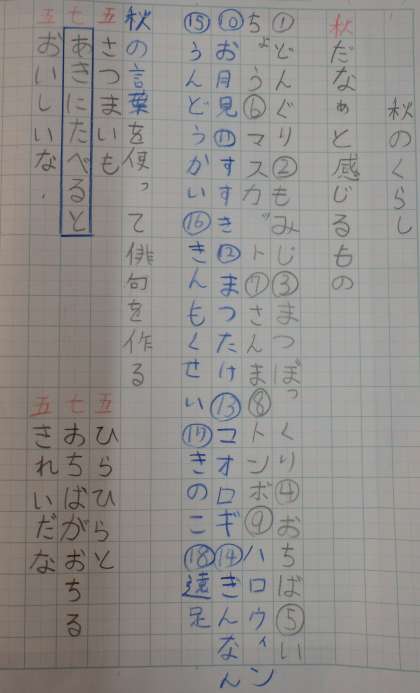 秋のくらし
秋だなぁと感じるもの
①どんぐり②もみじ③まつぼっくり④おちば⑤い
ちょう⑥マスカット⑦さんま⑧トンボ⑨ハロウィン
⑩お月見⑪すすき⑫まつたけ⑬コオロギ⑭ぎんなん
⑮うんどうかい⑯きんもくせい⑰きのこ⑱遠足
秋の言葉を使って俳句を作る
五さつまいも
七あきにたべると
五おいしいな.
五ひらひらと
七おちばがおちる
五きれいだな